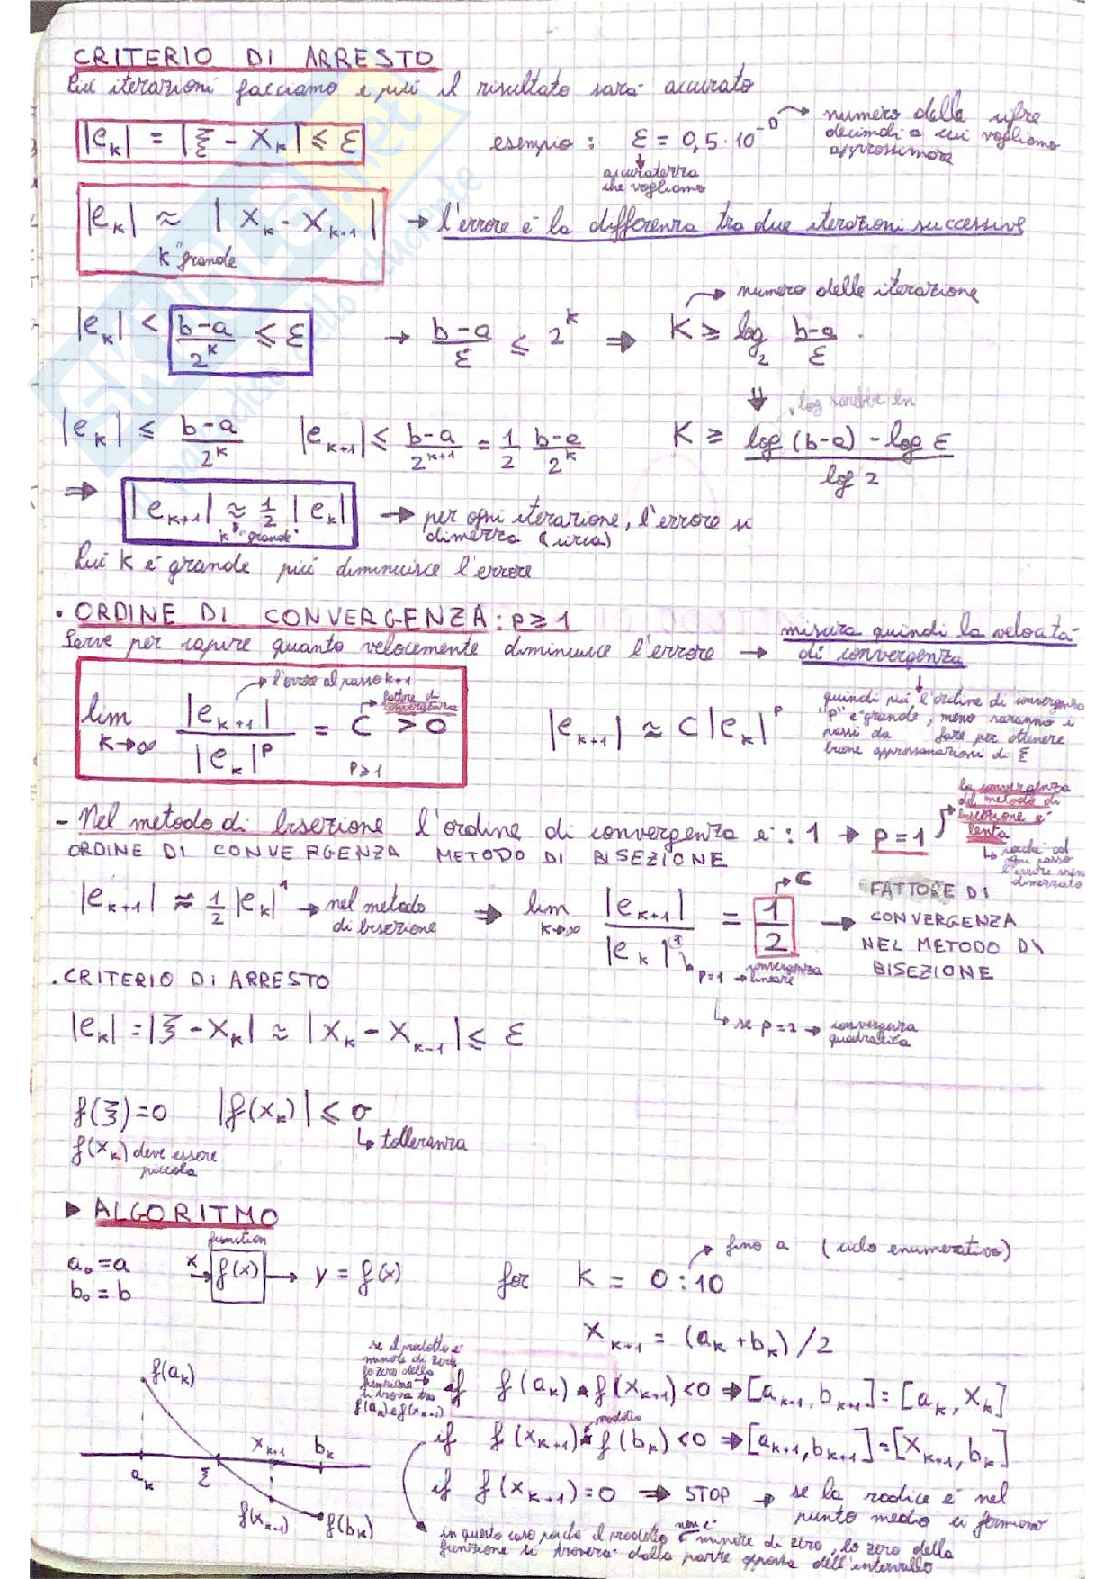 CRITERIO DI ARRESTO
Più iterazioni facciamo e più il risultato sarà accurato
|e_k| = |ξ - x_k| ≤ ε
esempio : ε = 0,5 · 10^-D → numero delle cifre decimali a cui vogliamo approssimare
accuratezza che vogliamo
|e_k| ≈ |x_k - x_{k-1}| → l'errore è la differenza tra due iterazioni successive
k "grande"
|e_k| < (b-a)/2^k ≤ ε → (b-a)/ε ≤ 2^k ⇒ K ≥ log_2 (b-a)/ε
numero delle iterazione
log sarebbe ln
|e_k| ≤ (b-a)/2^k |e_{k+1}| ≤ (b-a)/2^{k+1} = 1/2 (b-a)/2^k
K ≥ (log (b-a) - log ε)/log 2
⇒ |e_{k+1}| ≈ 1/2 |e_k| → per ogni iterazione, l'errore si dimezza (circa)
k "grande"
Più k è grande più diminuisce l'errore
• ORDINE DI CONVERGENZA : p ≥ 1
Serve per capire quanto velocemente diminuisce l'errore → misura quindi la velocità di convergenza
l'errore al passo k+1
lim k→∞ |e_{k+1}|/|e_k|^p = C > 0
fattore di convergenza
p ≥ 1
|e_{k+1}| ≈ C |e_k|^p
quindi più l'ordine di convergenza
"p" è grande, meno saranno i
passi da fare per ottenere
buone approssimazioni di ξ
- Nel metodo di bisezione l'ordine di convergenza è : 1 → p = 1
la convergenza
del metodo di
bisezione è
lenta
↳ perché ad
ogni passo
l'errore viene
dimezzato
ORDINE DI CONVERGENZA METODO DI BISEZIONE
|e_{k+1}| ≈ 1/2 |e_k|^1 → nel metodo di bisezione ⇒ lim k→∞ |e_{k+1}|/|e_k|^1 = 1/2 → C
→ FATTORE DI
CONVERGENZA
NEL METODO DI
BISEZIONE
p=1 → convergenza lineare
↳ se p = 2 → convergenza quadratica
. CRITERIO DI ARRESTO
|e_k| = |ξ - x_k| ≈ |x_k - x_{k-1}| ≤ ε
f(ξ) = 0 |f(x_k)| ≤ σ
↳ tolleranza
f(x_k) deve essere
piccola
► ALGORITMO
function
a_0 = a
b_0 = b
x → f(x) → y = f(x)
for K = 0 : 10
fino a (ciclo enumerativo)
x_{k+1} = (a_k + b_k) / 2
se il prodotto è
minore di zero
lo zero della
funzione →
si trova tra
f(a_k) e f(x_{k+1})
if f(a_k) • f(x_{k+1}) < 0 ⇒ [a_{k+1}, b_{k+1}] = [a_k, x_k]
if f(x_{k+1}) • f(b_k) < 0 ⇒ [a_{k+1}, b_{k+1}] = [x_{k+1}, b_k]
if f(x_{k+1}) = 0 ⇒ STOP → se la radice è nel
punto medio ci fermiamo
f(a_k)
a_k ξ x_{k+1} b_k
f(x_{k+1}) f(b_k)
in questo caso poiché il prodotto non è minore di zero, lo zero della
funzione si troverà dalla parte opposta dell'intervallo